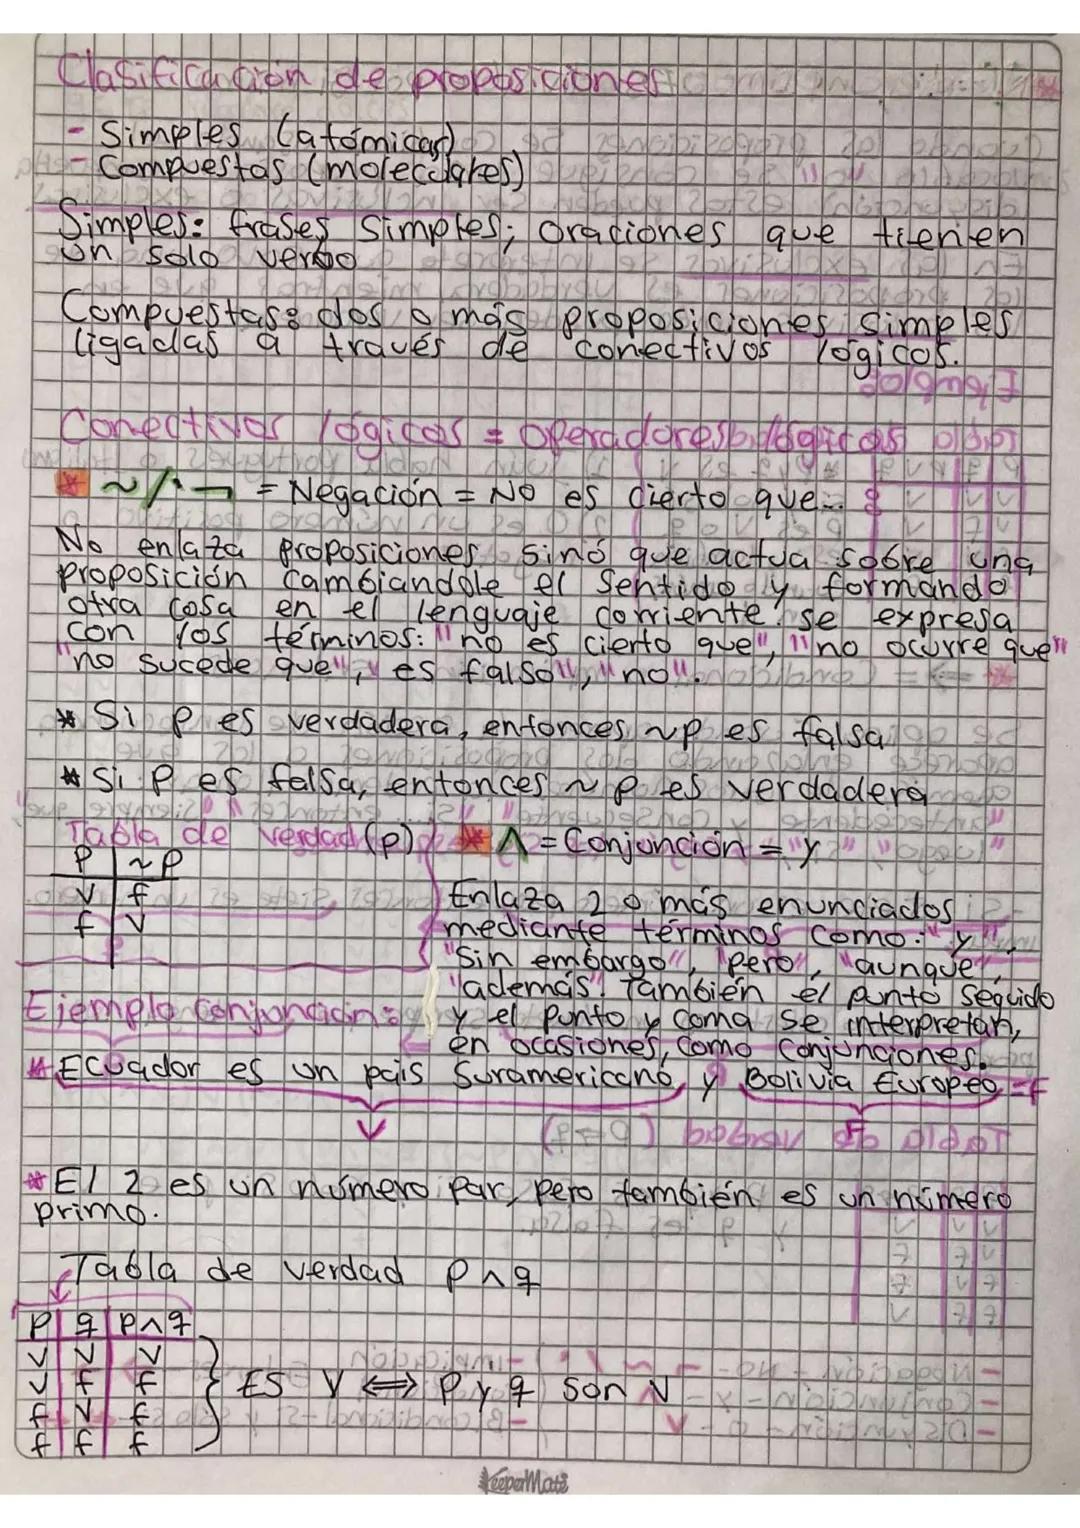 Clasificación de proposiciones
- Simples (atómicas)
- Compuestas (moleculares)
Simples: frases simples; oraciones que tienen
un solo verbo
Compuestas: dos o más proposiciones simples
ligadas a través de conectivos lógicos.
Conectivos lógicos = operadores lógicos
* ~/·¬ = Negación = No es cierto que...
No enlaza proposiciones, sinó que actua sobre una
proposición cambiandole el sentido y formando
otra cosa en el lenguaje corriente. se expresa
con los términos: "no es cierto que", "no ocurre que"
"no sucede que", "es falso", "no".
* Si p es verdadera, entonces ~p es falsa
* Si p es falsa, entonces ~p es verdadera
Tabla de verdad (p)
p | ~p
v | f
f | v
* ∧ = Conjunción = "y"
Enlaza 2 o más enunciados
mediante términos como: "y",
"sin embargo", "pero", "aunque",
"además". También el punto seguido
y el punto y coma se interpretan,
en ocasiones, como conjunciones.
Ejemplo conjunción:
* Ecuador es un pais Suramericano y Bolivia Europeo = f
v f
* El 2 es un número par, pero también es un número
primo.
Tabla de verdad p∧q
p | q | p∧q
v | v | v
v | f | f
f | v | f
f | f | f
ES V ⟺ p y q son V
KeeperMate